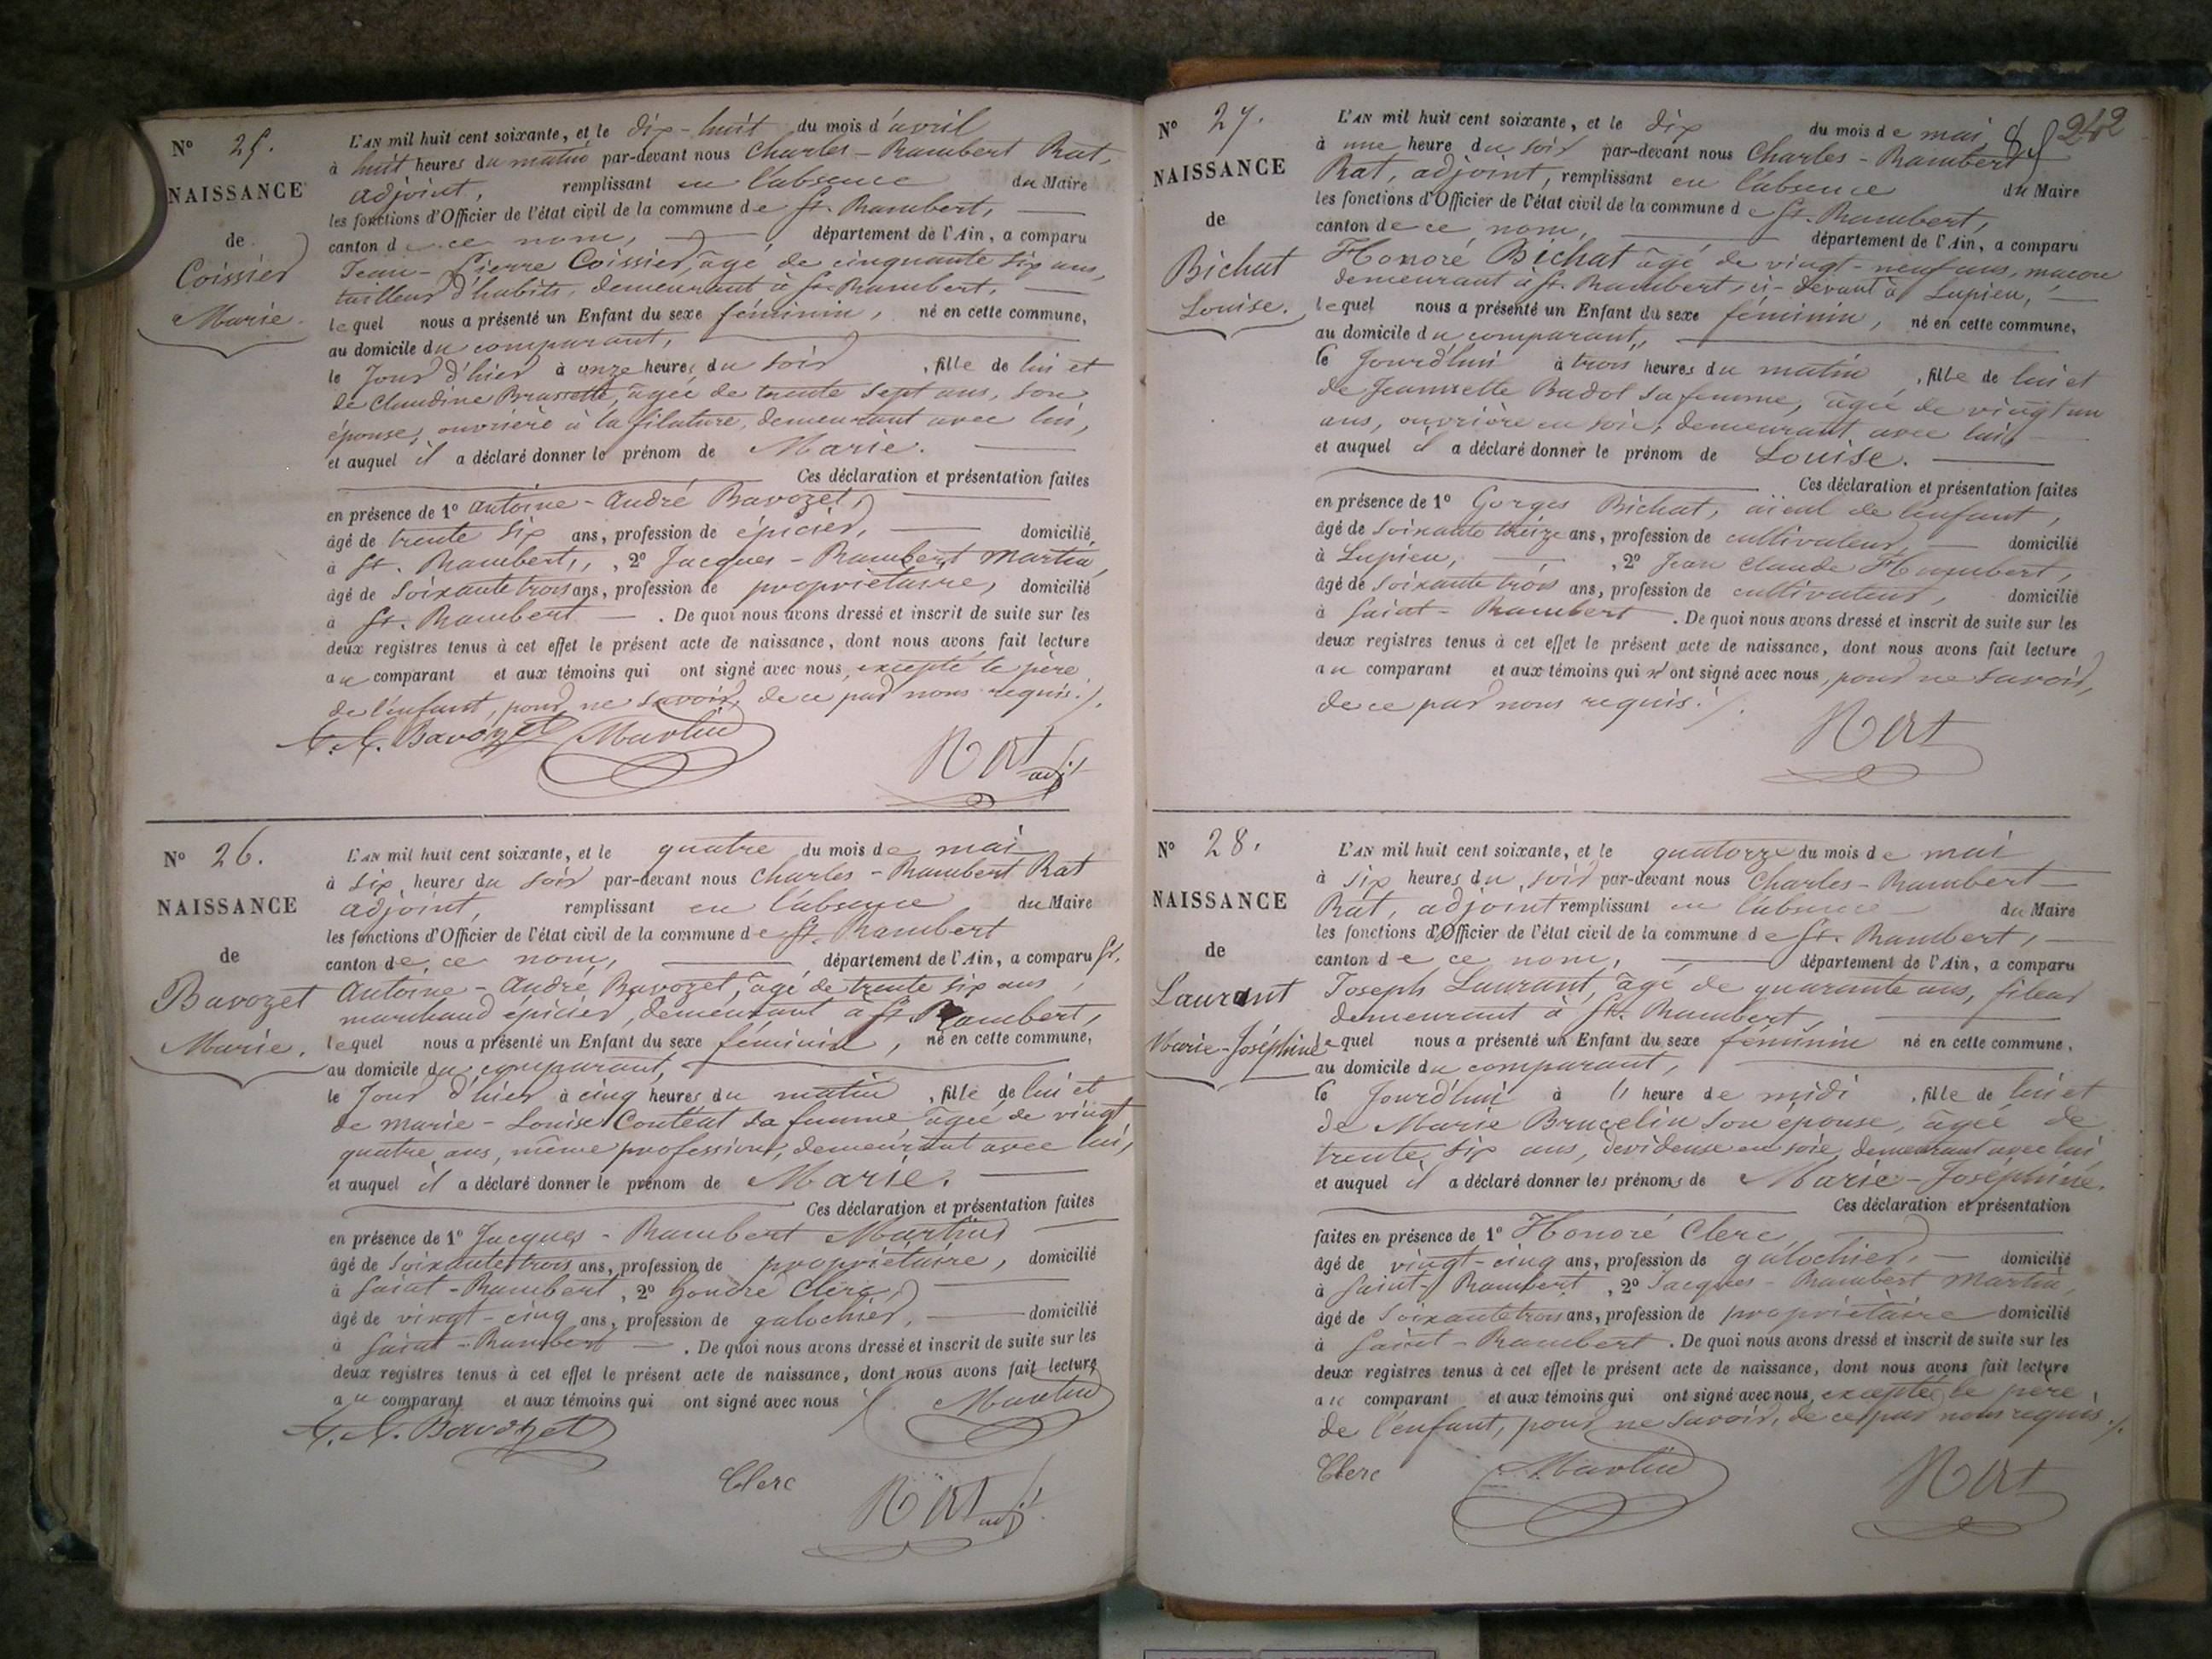 N° 25.
NAISSANCE
de
Coissier
Marie.
L'AN mil huit cent soixante, et le dix-huit du mois d'avril
à huit heures du matin par-devant nous Charles-Rambert Rat,
adjoint, remplissant en l'absence du Maire
les fonctions d'Officier de l'état civil de la commune de St. Rambert,
canton de ce nom, département de l'Ain, a comparu
Jean-Pierre Coissier, âgé de cinquante six ans,
tailleur d'habits, demeurant à St. Rambert,
lequel nous a présenté un Enfant du sexe féminin, né en cette commune,
au domicile du comparant,
le Jour d'hier à onze heures du soir, fille de lui et
de Claudine Brassette, âgée de trente sept ans, son
épouse, ouvrière à la filature, demeurant avec lui,
et auquel il a déclaré donner le prénom de Marie.
Ces déclaration et présentation faites
en présence de 1° Antoine-André Bavozet,
âgé de trente six ans, profession de épicier, domicilié
à St. Rambert, 2° Jacques-Rambert Martin,
âgé de Soixante trois ans, profession de propriétaire, domicilié
à St. Rambert. De quoi nous avons dressé et inscrit de suite sur les
deux registres tenus à cet effet le présent acte de naissance, dont nous avons fait lecture
au comparant et aux témoins qui ont signé avec nous, excepté le père
de l'enfant, pour ne savoir, de ce par nous requis.
A. A. Bavozet Martin
Rat adj.
N° 26.
NAISSANCE
de
Bavozet
Marie.
L'AN mil huit cent soixante, et le quatre du mois de mai
à six heures du soir par-devant nous Charles-Rambert Rat
adjoint, remplissant en l'absence du Maire
les fonctions d'Officier de l'état civil de la commune de St. Rambert
canton de ce nom, département de l'Ain, a comparu Sr.
Antoine-André Bavozet, âgé de trente six ans,
marchand épicier, demeurant à St Rambert,
lequel nous a présenté un Enfant du sexe féminin, né en cette commune,
au domicile du comparant,
le Jour d'hier à cinq heures du matin, fille de lui et
de Marie-Louise Content sa femme âgée de vingt
quatre ans, même profession, demeurant avec lui,
et auquel il a déclaré donner le prénom de Marie.
Ces déclaration et présentation faites
en présence de 1° Jacques-Rambert Martin
âgé de Soixante trois ans, profession de propriétaire, domicilié
à Saint-Rambert, 2° honoré Clerc,
âgé de vingt-cinq ans, profession de galochier, domicilié
à Saint-Rambert. De quoi nous avons dressé et inscrit de suite sur les
deux registres tenus à cet effet le présent acte de naissance, dont nous avons fait lecture
au comparant et aux témoins qui ont signé avec nous
A. A. Bavozet Martin
Clerc Rat adj.
242
N° 27.
NAISSANCE
de
Bichat
Louise.
L'AN mil huit cent soixante, et le dix du mois de mai
à une heure du soir par-devant nous Charles-Rambert
Rat, adjoint, remplissant en l'absence du Maire
les fonctions d'Officier de l'état civil de la commune de St. Rambert,
canton de ce nom, département de l'Ain, a comparu
Honoré Bichat âgé de vingt-neuf ans, maçon
demeurant à St. Rambert, ci-devant à Lupieu,
lequel nous a présenté un Enfant du sexe féminin, né en cette commune,
au domicile du comparant,
le Jourd'hui à trois heures du matin, fille de lui et
de Jeannette Badot sa femme, âgée de vingt un
ans, ouvrière en soie, demeurant avec lui,
et auquel il a déclaré donner le prénom de Louise.
Ces déclaration et présentation faites
en présence de 1° Gorges Bichat, aïeul de l'enfant,
âgé de soixante treize ans, profession de cultivateur, domicilié
à Lupieu, 2° Jean Claude Humbert,
âgé de Soixante trois ans, profession de cultivateur, domicilié
à Saint-Rambert. De quoi nous avons dressé et inscrit de suite sur les
deux registres tenus à cet effet le présent acte de naissance, dont nous avons fait lecture
au comparant et aux témoins qui n'ont signé avec nous, pour ne savoir,
de ce par nous requis.
Rat
N° 28.
NAISSANCE
de
Laurant
Marie-Joséphine
L'AN mil huit cent soixante, et le quatorze du mois de mai
à six heures du soir par-devant nous Charles-Rambert
Rat, adjoint remplissant en l'absence du Maire
les fonctions d'Officier de l'état civil de la commune de St. Rambert,
canton de ce nom, département de l'Ain, a comparu
Joseph Laurant, âgé de quarante ans, fileur
demeurant à St. Rambert,
lequel nous a présenté un Enfant du sexe féminin né en cette commune,
au domicile du comparant,
le Jourd'hui à l' heure de midi, fille de lui et
de Marie Brucelin son épouse, âgée de
trente six ans, dévideuse en soie, demeurant avec lui
et auquel il a déclaré donner les prénoms de Marie-Joséphine.
Ces déclaration et présentation
faites en présence de 1° Honoré Clerc,
âgé de vingt-cinq ans, profession de galochier, domicilié
à Saint-Rambert, 2° Jacques-Rambert Martin,
âgé de Soixante trois ans, profession de propriétaire domicilié
à Saint-Rambert. De quoi nous avons dressé et inscrit de suite sur les
deux registres tenus à cet effet le présent acte de naissance, dont nous avons fait lecture
au comparant et aux témoins qui ont signé avec nous, excepté le père
de l'enfant, pour ne savoir, de ce par nous requis.
Clerc Martin Rat